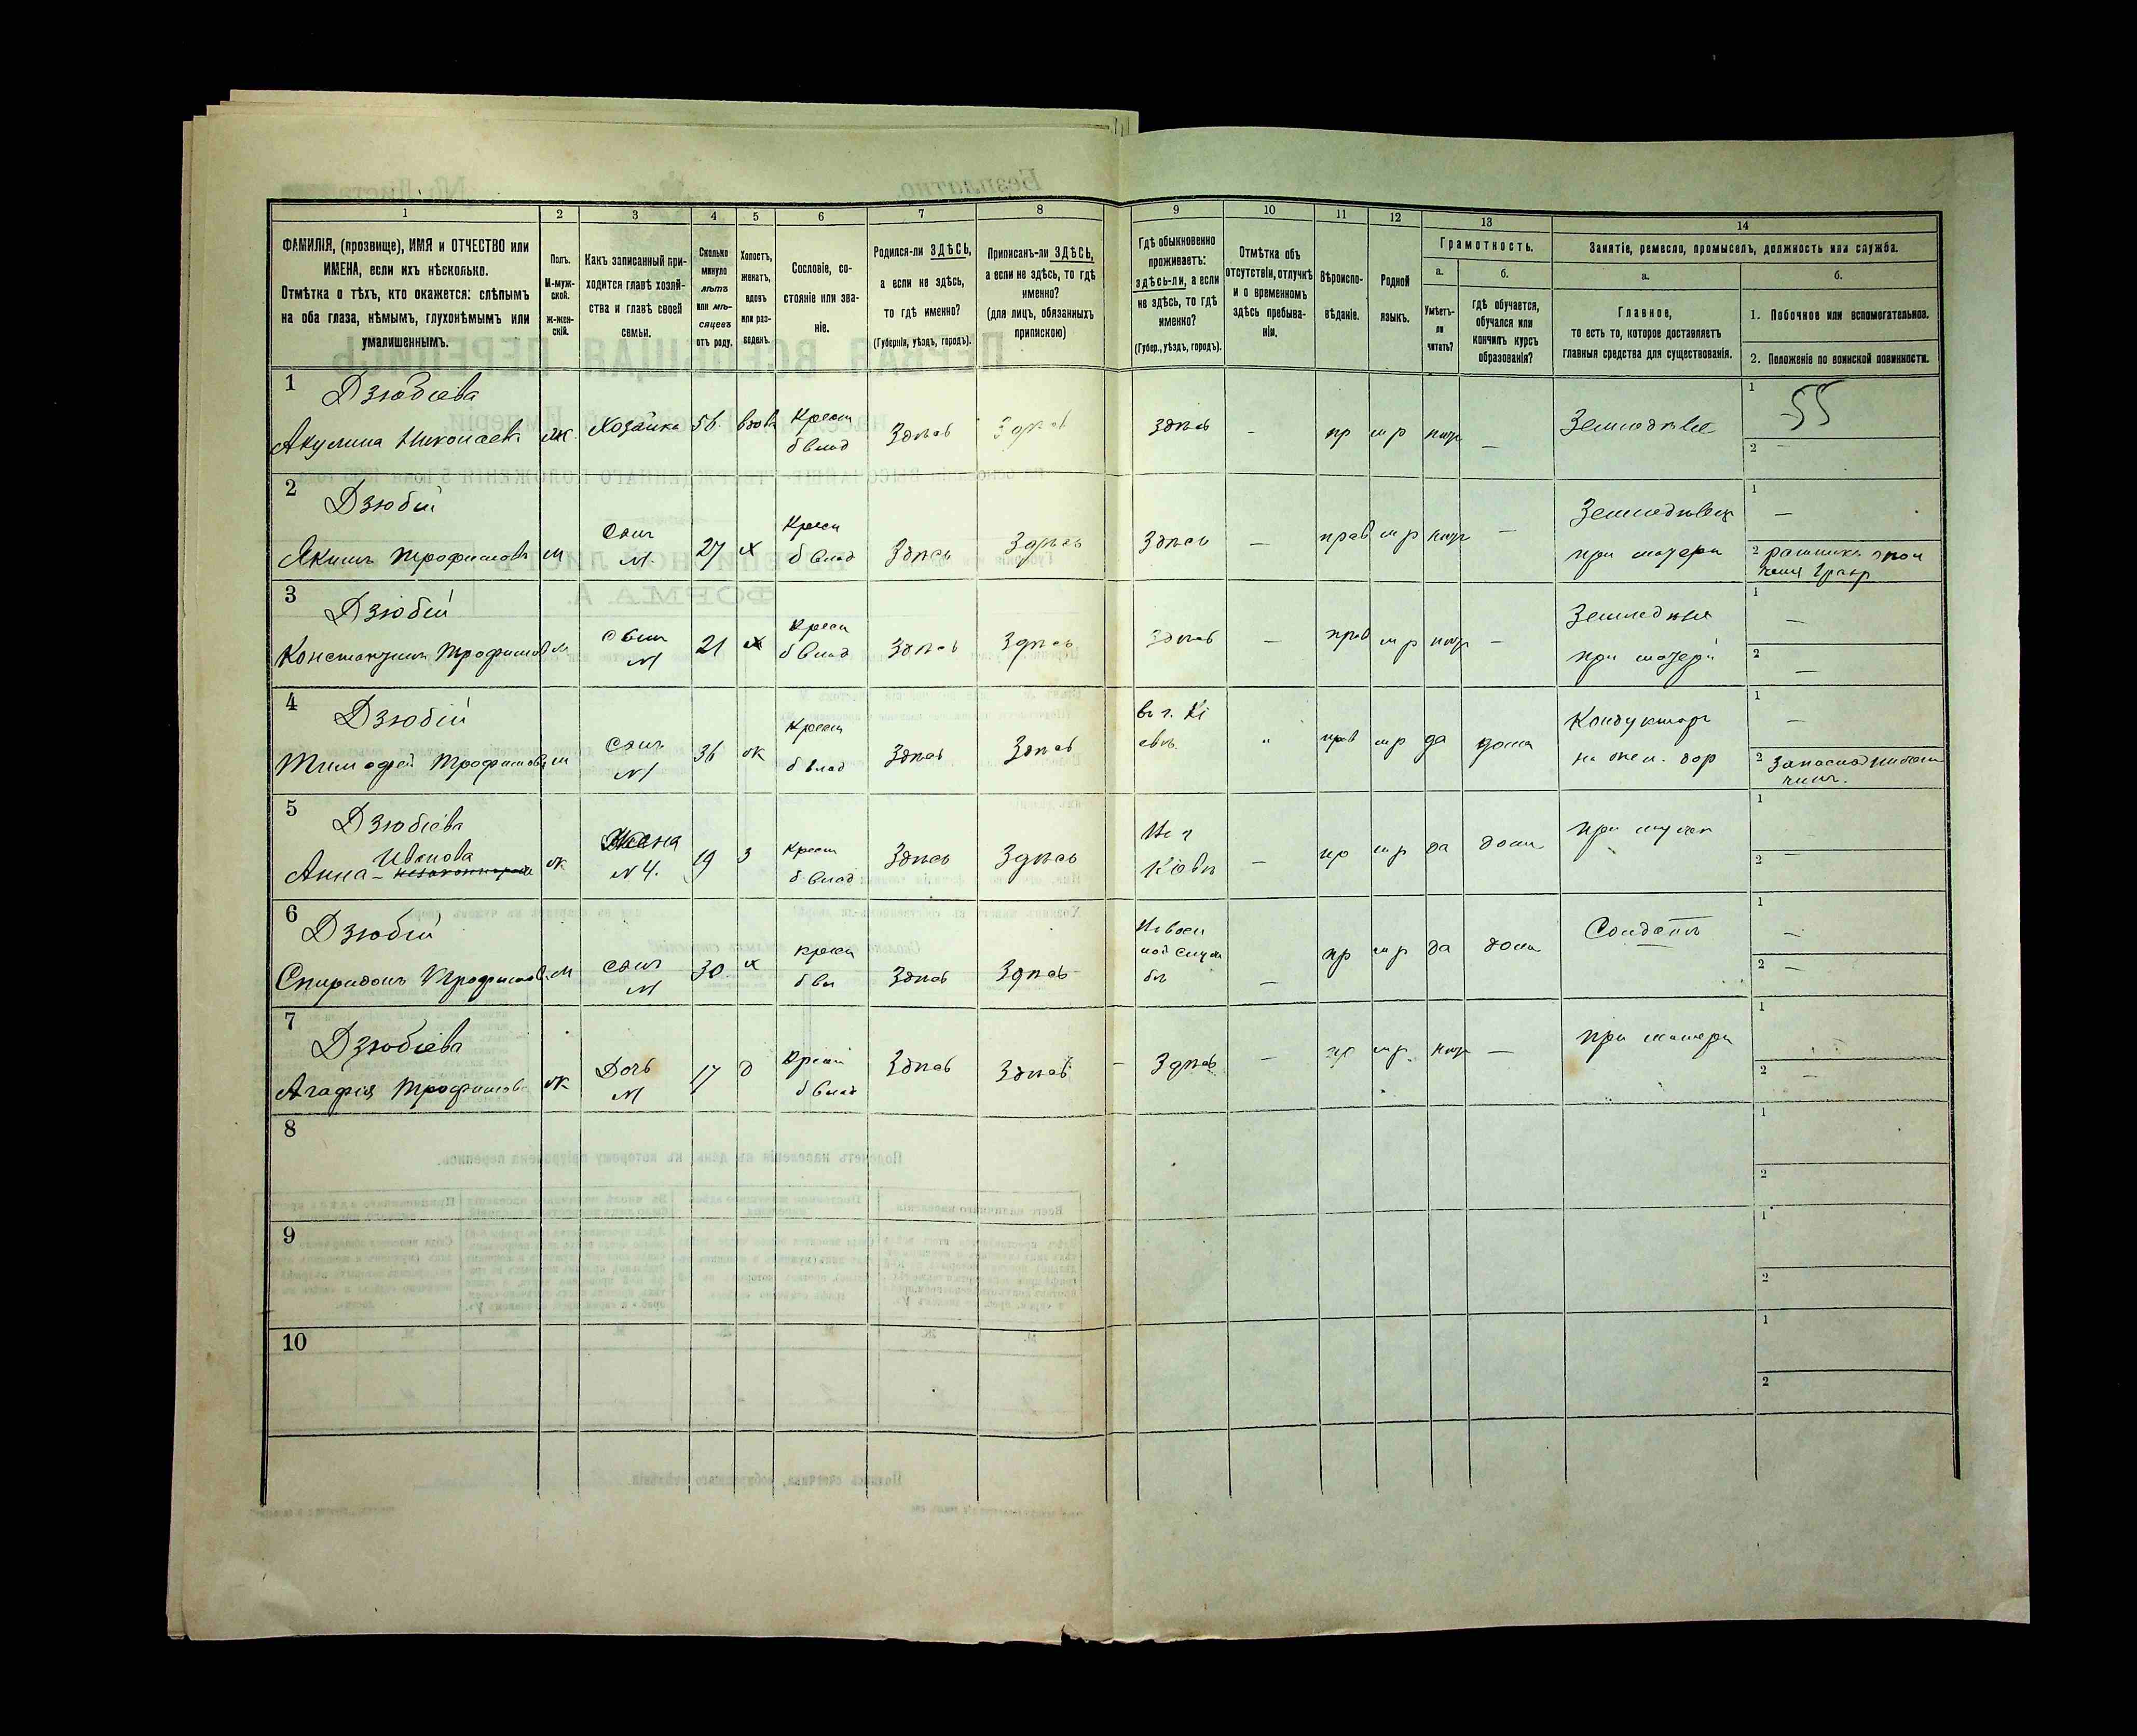 1 2 3 4 5 6 7 8 9 10 11 12 13 14
ФАМИЛІЯ, (прозвище), ИМЯ и ОТЧЕСТВО или
ИМЕНА, если ихъ нѣсколько.
Отмѣтка о тѣхъ, кто окажется: слѣпымъ
на оба глаза, нѣмымъ, глухонѣмымъ или
умалишеннымъ.
Полъ.
М-муж-
ской.
Ж-жен-
скій.
Какъ записанный при-
ходится главѣ хозяй-
ства и главѣ своей
семьи.
Сколько
минуло
лѣтъ
или мѣ-
сяцевъ
отъ роду.
Холостъ,
женатъ,
вдовъ
или раз-
веденъ.
Сословіе, со-
стояніе или зва-
ніе.
Родился-ли ЗДѢСЬ,
а если не здѣсь,
то гдѣ именно?
(Губернія, уѣздъ, городъ).
Приписанъ-ли ЗДѢСЬ,
а если не здѣсь, то гдѣ
именно?
(для лицъ, обязанныхъ
припискою)
Гдѣ обыкновенно
проживаетъ:
здѣсь-ли, а если
не здѣсь, то гдѣ
именно?
(Губер., уѣздъ, городъ).
Отмѣтка объ
отсутствіи, отлучкѣ
и о временномъ
здѣсь пребыва-
ніи.
Вѣроиспо-
вѣданіе.
Родной
языкъ.
Грамотность.
а.
Умѣетъ-
ли
читать?
б.
гдѣ обучается,
обучался или
кончилъ курсъ
образованія?
Занятіе, ремесло, промыселъ, должность или служба.
а.
Главное,
то есть то, которое доставляетъ
главныя средства для существованія.
б.
1. Побочное или вспомогательное.
2. Положеніе по воинской повинности.
1 Дзюбіева
Акулина Николаева ж. Хозяйка 56 вдова Крест б влад Здѣсь Здѣсь Здѣсь – пр м р – Земледѣліе
1 55
2 –
2 Дзюбій
Якимъ Трофимовъ м Сынъ М. 27 х Крест б влад Здѣсь Здѣсь Здѣсь – прав м р – Земледѣліе
при матери
1 –
2
3 Дзюбій
Константинъ Трофимов м Сынъ М 21 х Крест б влад Здѣсь Здѣсь Здѣсь – прав м р – Земледѣліе
при матери
1 –
2 –
4 Дзюбій
Тимофей Трофимовъ м Сынъ М 36 ж Крест б влад Здѣсь Здѣсь в г. Кі
евѣ. " прав м р да дома Кондукторъ
на жел. дор
1 –
2 Запасной
чинъ.
5 Дзюбіева
Ивонова
Анна ж Жена
N 4. 19 З Крест б влад Здѣсь Здѣсь Кіевѣ – пр м р да дома при мужѣ
1
2 –
6 Дзюбій
Спиридонъ Трофимов м Сынъ М 30 х Крест б вл Здѣсь Здѣсь На воен
ной служ
бѣ – пр м р да дома Солдатъ
1 –
2 –
7 Дзюбіева
Агафія Трофимов ж Дочь М 17 д Крест б влад Здѣсь Здѣсь – Здѣсь – пр м р – при матери
1
2 –
8
1
2
9
1
2
10
1
2